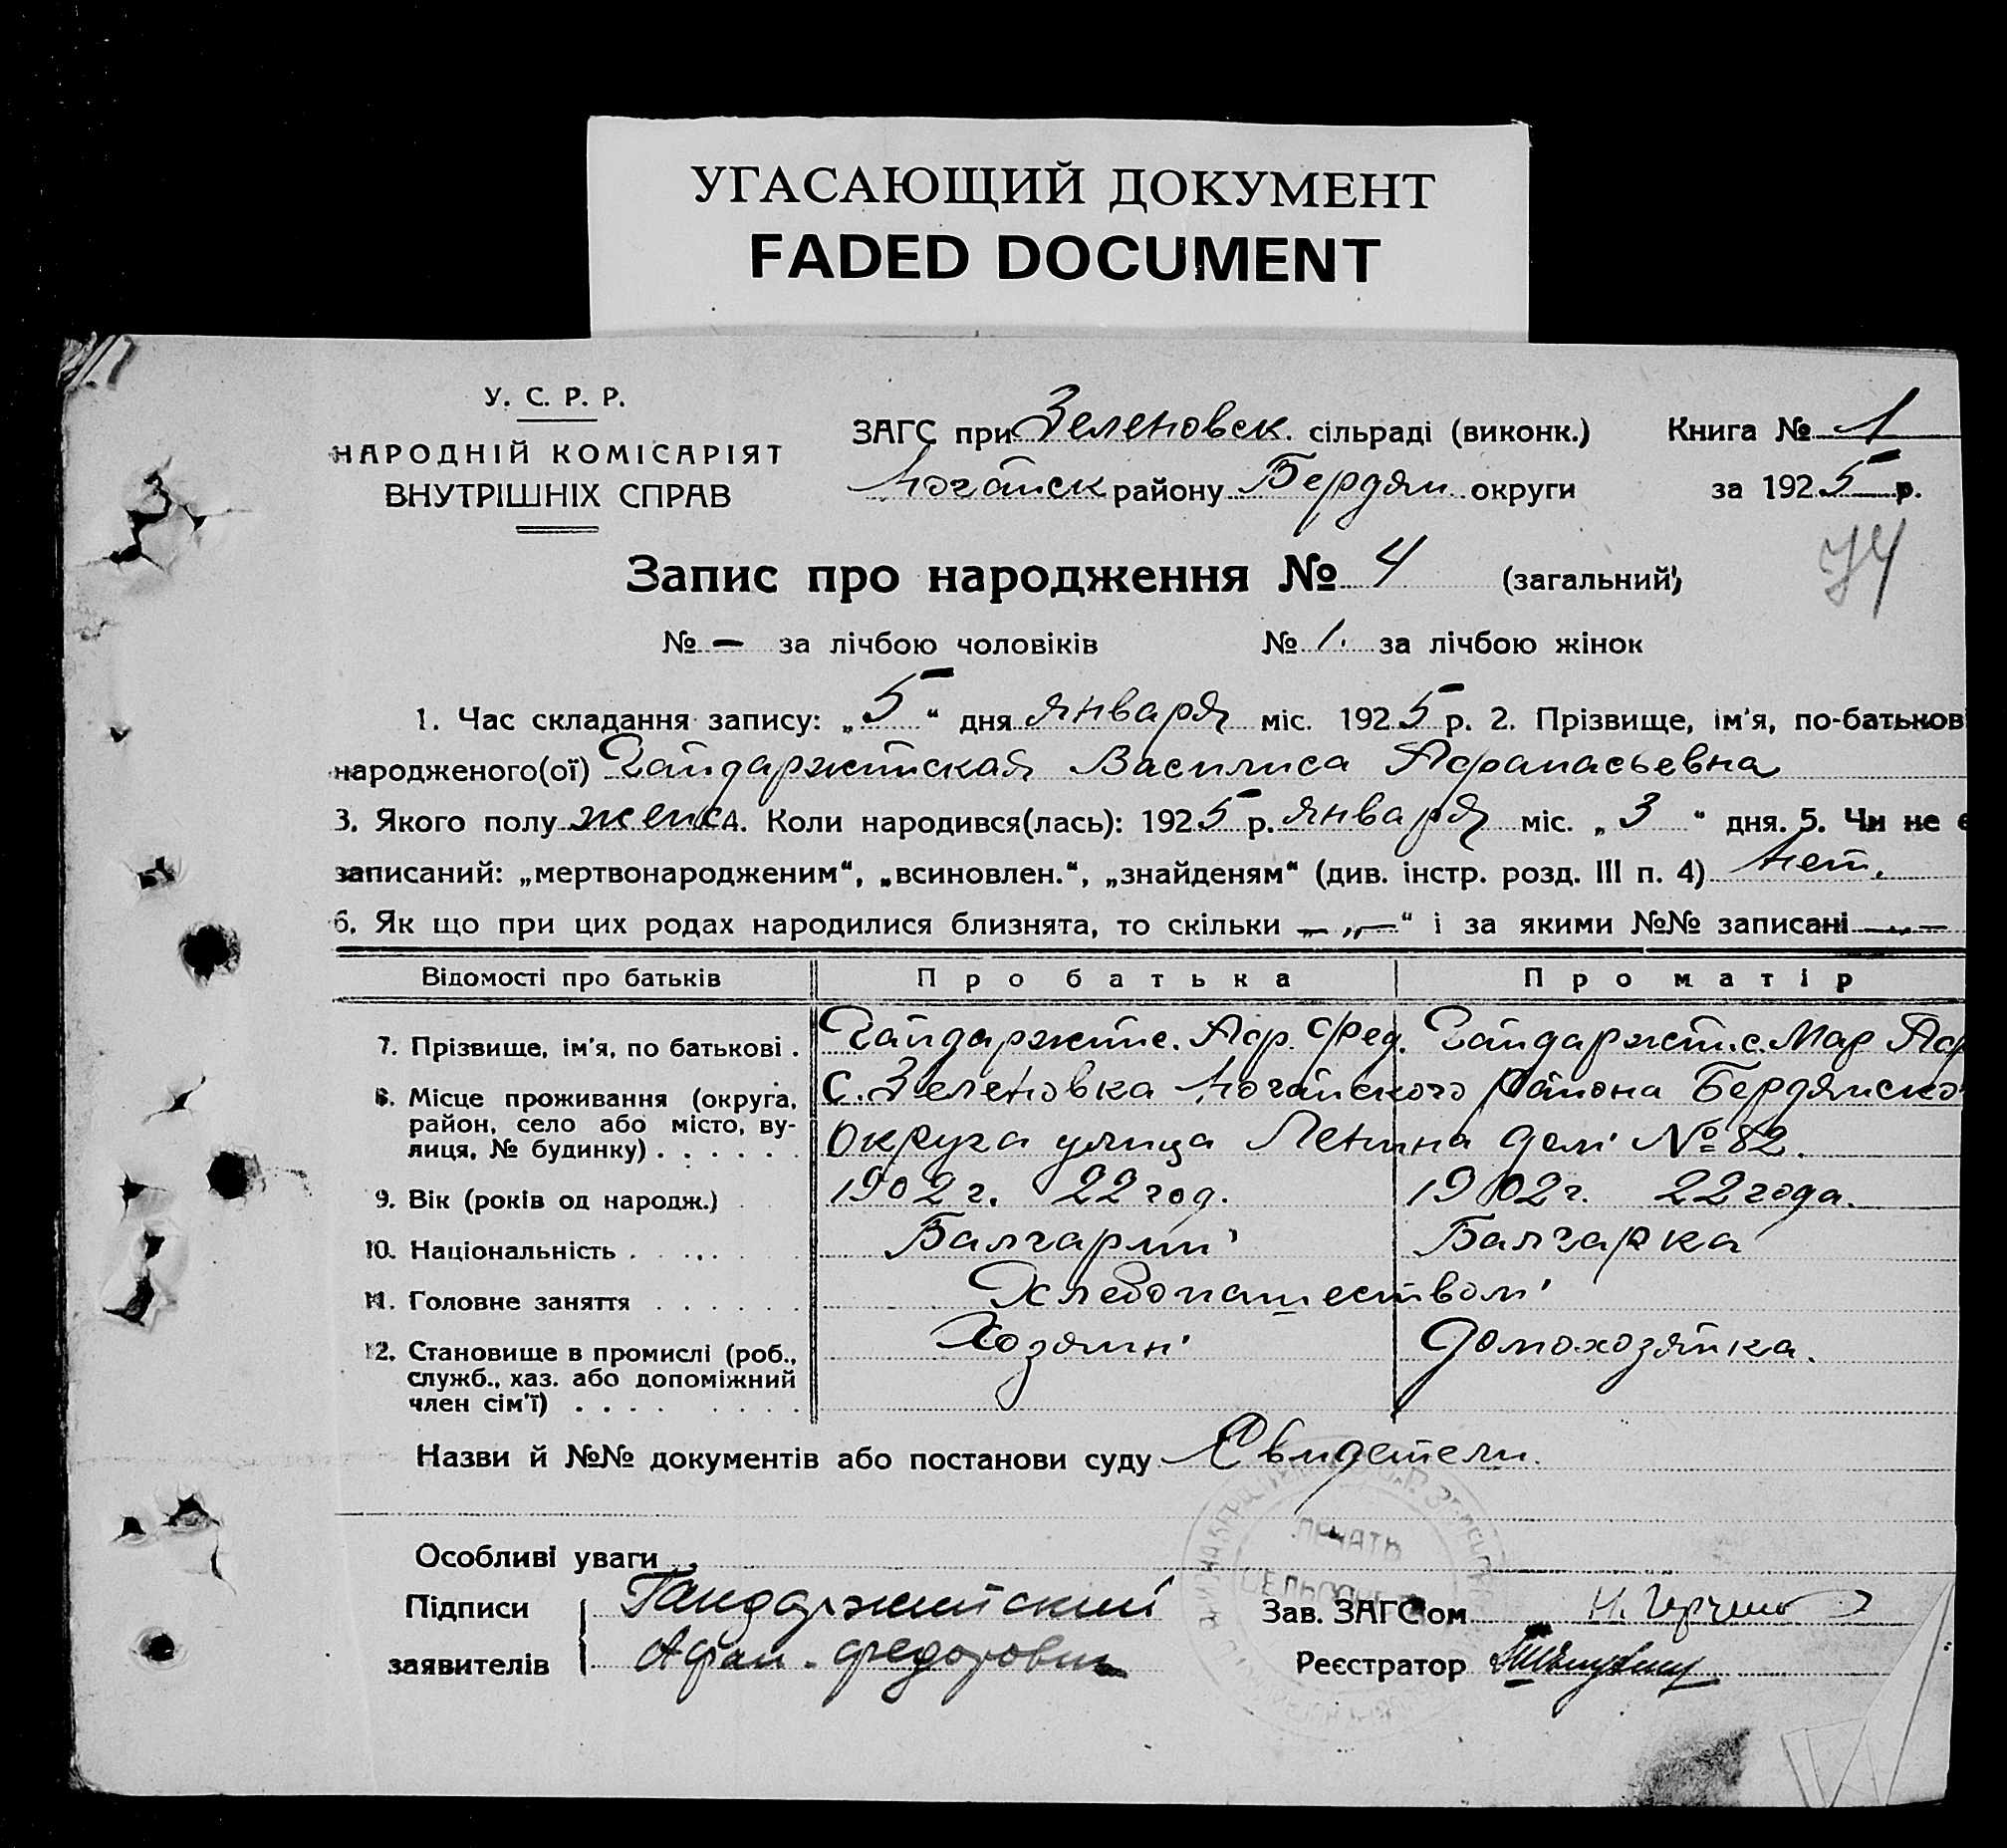 УГАСАЮЩИЙ ДОКУМЕНТ
FADED DOCUMENT
У. С. Р. Р.
НАРОДНІЙ КОМІСАРІЯТ
ВНУТРІШНІХ СПРАВ
ЗАГС при Зеленовск. сільраді (виконк.) Книга № 1
Ногайск району Бердян округи за 1925 р.
74
Запис про народження № 4 (загальний)
№ — за лічбою чоловіків № 1. за лічбою жінок
1. Час складання запису: „5“ дня января міс. 1925 р. 2. Прізвище, ім'я, по-батькові
народженого(ої) Гайдаржийская Василиса Афанасьевна
3. Якого полу женск. Коли народився(лась): 1925 р. января міс. „3“ дня. 5. Чи не є
записаний: „мертвонародженим“, „всиновлен.“, „знайденям“ (див. інстр. розд. III п. 4) Нет.
6. Як що при цих родах народилися близнята, то скільки — „—“ і за якими №№ записані —„—
Відомості про батьків Про батька Про матір
7. Прізвище, ім'я, по батькові . Гайдаржийс. Аф. Фед. Гайдаржийс. Мар Аф
8. Місце проживання (округа, С. Зеленовка Ногайского района Бердянско
район, село або місто, ву-
лиця, № будинку) . . . . . . Округа улица Ленина дом № 82.
9. Вік (років од народж.) 1902 г. 22 год. 1902 г. 22 года.
10. Національність . . . . Балгарин Балгарка
11. Головне заняття . . . . . . Хлебопашеством
12. Становище в промислі (роб., Хозяин Домохозяйка.
служб., хаз. або допоміжний
член сім'ї) . . . . . . . .
Назви й №№ документів або постанови суду Свидетели.
Особливі уваги
Підписи Гайдаржийский Зав. ЗАГС'ом Н.
заявителів Афан. Федорович Реєстратор
ПЕЧАТЬ
СЕЛЬСОВЕТ